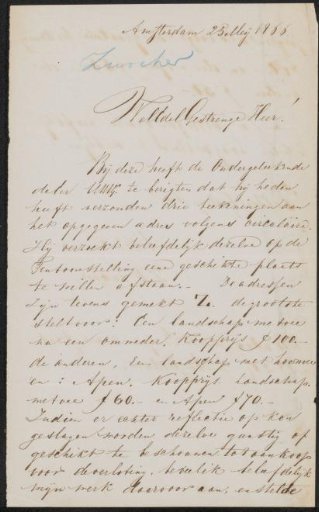 Amsterdam 25 Mey 1866
Zürcher
WelEdel Gestrenge Heer!
Bij deze heeft de Ondergeteekende
de eer UWEG te berigten dat hij heden
heeft verzonden drie teekeningen aan
het opgegeven adres volgens circulaire.
Hij verzoekt beleefdelijk dezelve op de
Tentoonstelling eene geschikte plaats
te willen afstaan. De adressen
zijn tevens gemerkt de grootste
stelt voor: Een landschap met vee
na een onweder. Koopprijs ƒ 100.—
de anderen, Een landschap met
en: Apen. Koopprijs landschap
met vee ƒ 60.— en Apen ƒ 70.—
Indien er eenige reflectie op kon
geslagen worden dezelve gunstig of
geschikt te beschouwen tot aankoop
voor de verloting. beveelik beleefdelijk
mijn werk daarvoor aan, en stelde